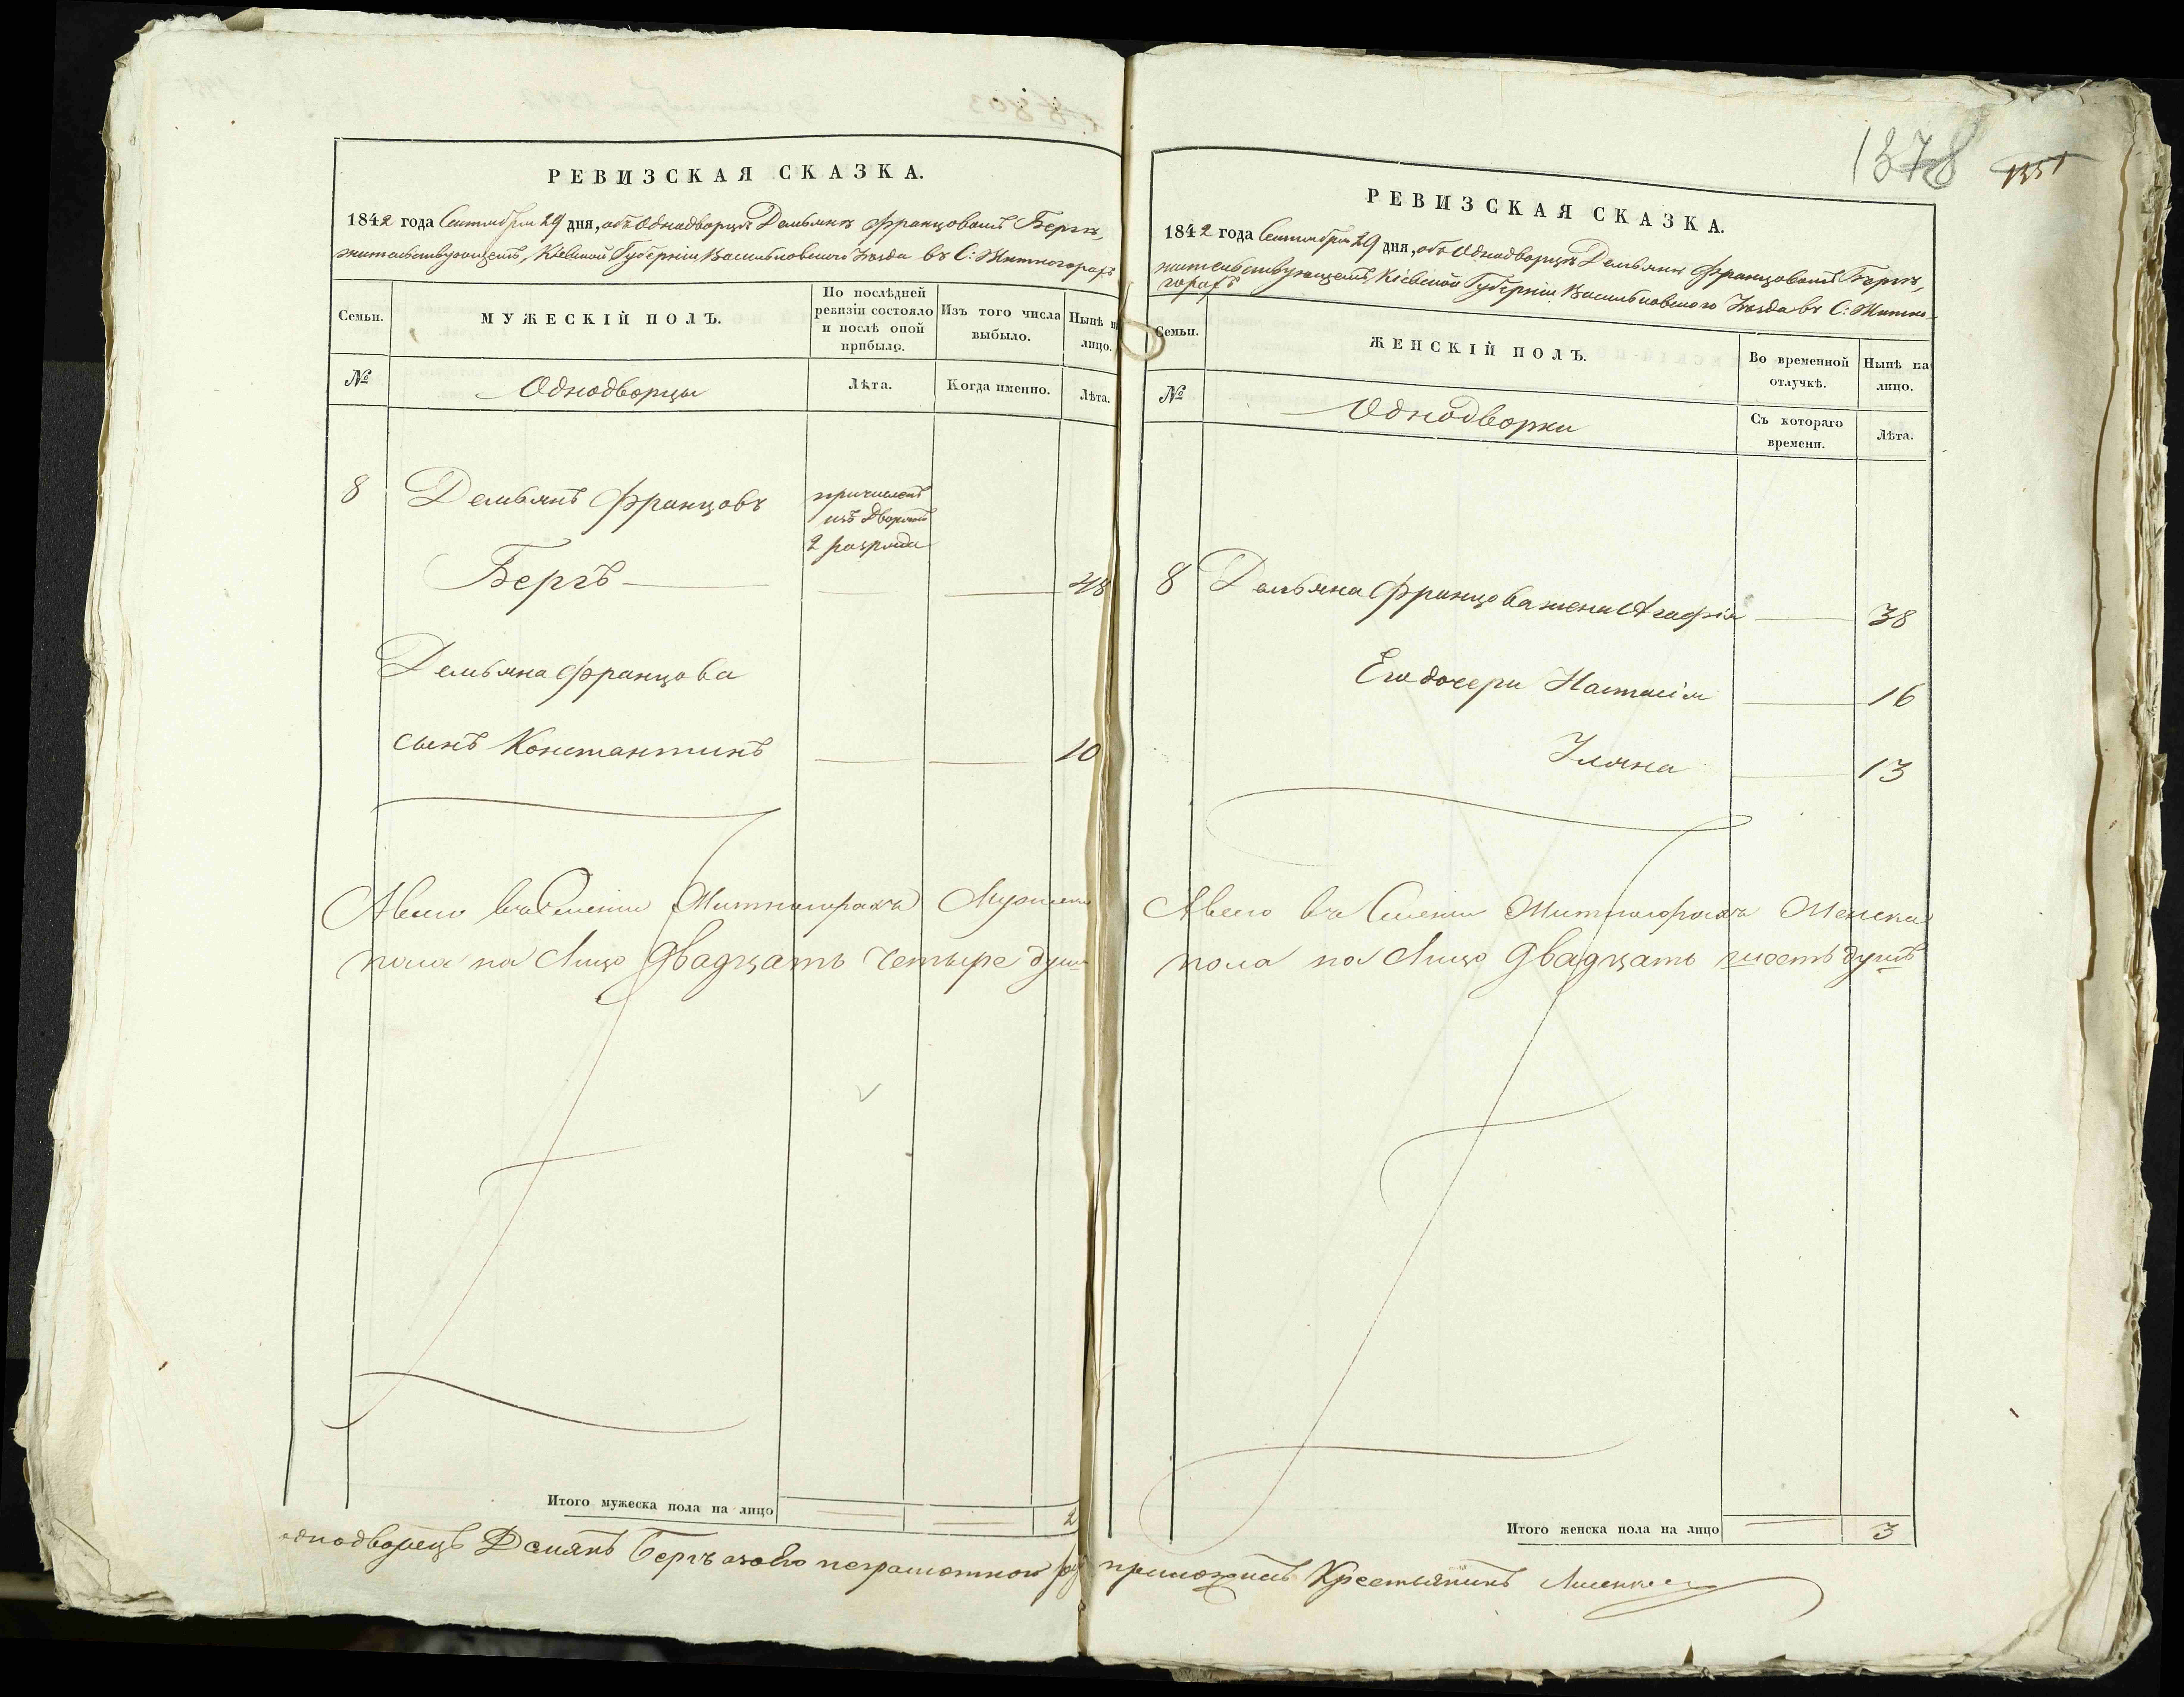 РЕВИЗСКАЯ СКАЗКА.
1842 года Сентября 29 дня, объ Однодворцѣ Демьянѣ Францовомъ Бергѣ,
жительствующемъ, Кіевской Губерніи Васильковского Уезда въ С: Житногорахъ
Семьи.
МУЖЕСКІЙ ПОЛЪ.
По послѣдней
ревизіи состояло
и послѣ оной
прибыло.
Изъ того числа
выбыло.
Нынѣ на
лицо.
№
Однодворцы
Лѣта.
Когда именно.
Лѣта.
8 Демьянъ Францовъ
причисленъ
изъ Дворянъ
2 разряда
Бергъ 48
Демьяна Францова
сынъ Константинъ 10
А всего въ Селении Житногорахъ Мужеска
пола на Лицо двадцать четыре души
Итого мужеска пола на лицо 2
однодворецъ Демянъ Бергъ а за его неграмотною
1378
1351
РЕВИЗСКАЯ СКАЗКА.
1842 года Сентября 29 дня, объ Однодворцѣ Демьянѣ Францовомъ Бергѣ,
жительствующемъ, Кіевской Губерніи Васильковского Уезда въ С: Житно-
горахъ
Семьи.
ЖЕНСКІЙ ПОЛЪ.
Во временной
отлучкѣ.
Нынѣ на
лицо.
№
Однодворки
Съ котораго
времени.
Лѣта.
8 Демьяна Францова жена Агафія 38
Его дочери Настасія 16
Уляна 13
А всего въ Селении Житногорахъ Женска
пола на Лицо двадцать шесть душъ
Итого женска пола на лицо 3
приложилъ Крестьянинъ